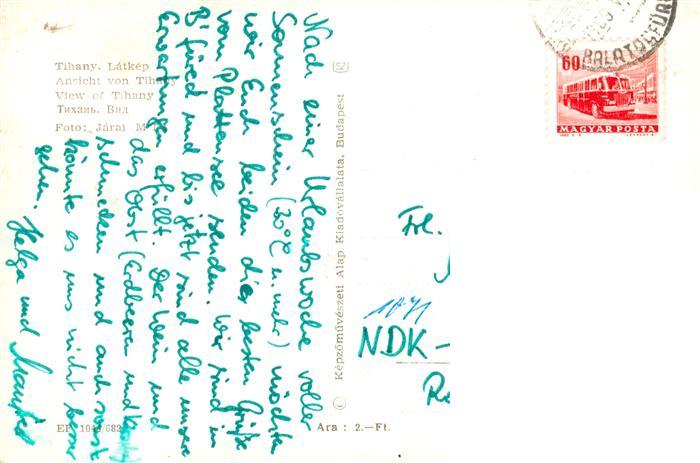 Tihany. Látkép
Ansicht von Tihany
View of Tihany
Тихань. Вид
Foto: Járai
Nach einer Urlaubswoche voller
Sonnenschein (30°C u. mehr) möchten
wir Euch beiden die besten Grüße
vom Plattensee senden. Wir sind in
B'füred und bis jetzt sind alle unsere
Erwartungen erfüllt. Der Wein und
das Obst (Erdbeeren und
schmecken und auch sonst
könnte es uns nicht besser
gehen. Helga und Manfred
Képzőművészeti Alap Kiadóvállalata, Budapest
SZ
Ára : 2.—Ft.
BALATONFÜRED
60
MAGYAR POSTA
Frl.
1071
NDK-